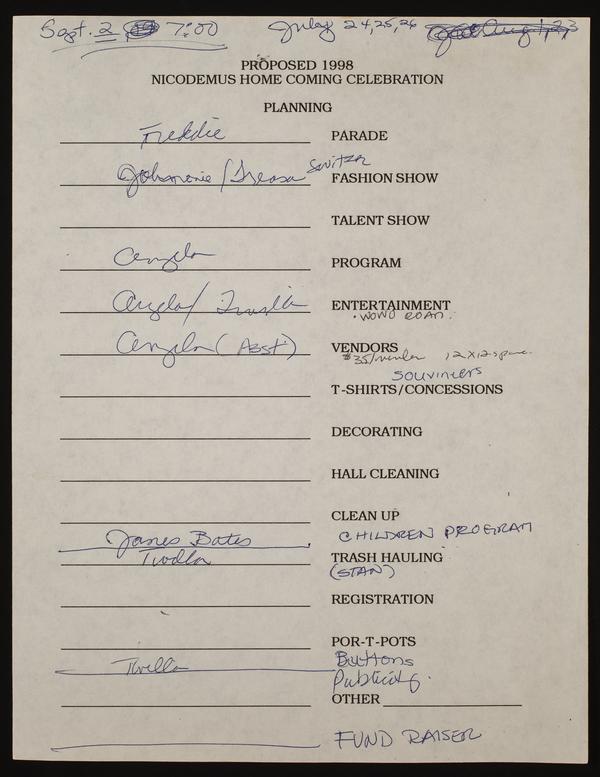 Sept. 2 7:00 July 24,25,26
PROPOSED 1998
NICODEMUS HOME COMING CELEBRATION
PLANNING
Freddie PARADE
Switzer
Johnonie / Treasa FASHION SHOW
TALENT SHOW
Angela PROGRAM
Angela/ ENTERTAINMENT
Angela (Asst) VENDORS
$35/vender 12x12 space
souviniers
T-SHIRTS/CONCESSIONS
DECORATING
HALL CLEANING
CLEAN UP
James Bates CHILDREN PROGRAM
Twilla TRASH HAULING
(STAN)
REGISTRATION
POR-T-POTS
Twilla Buttons
Publicity.
OTHER
FUND RAISER